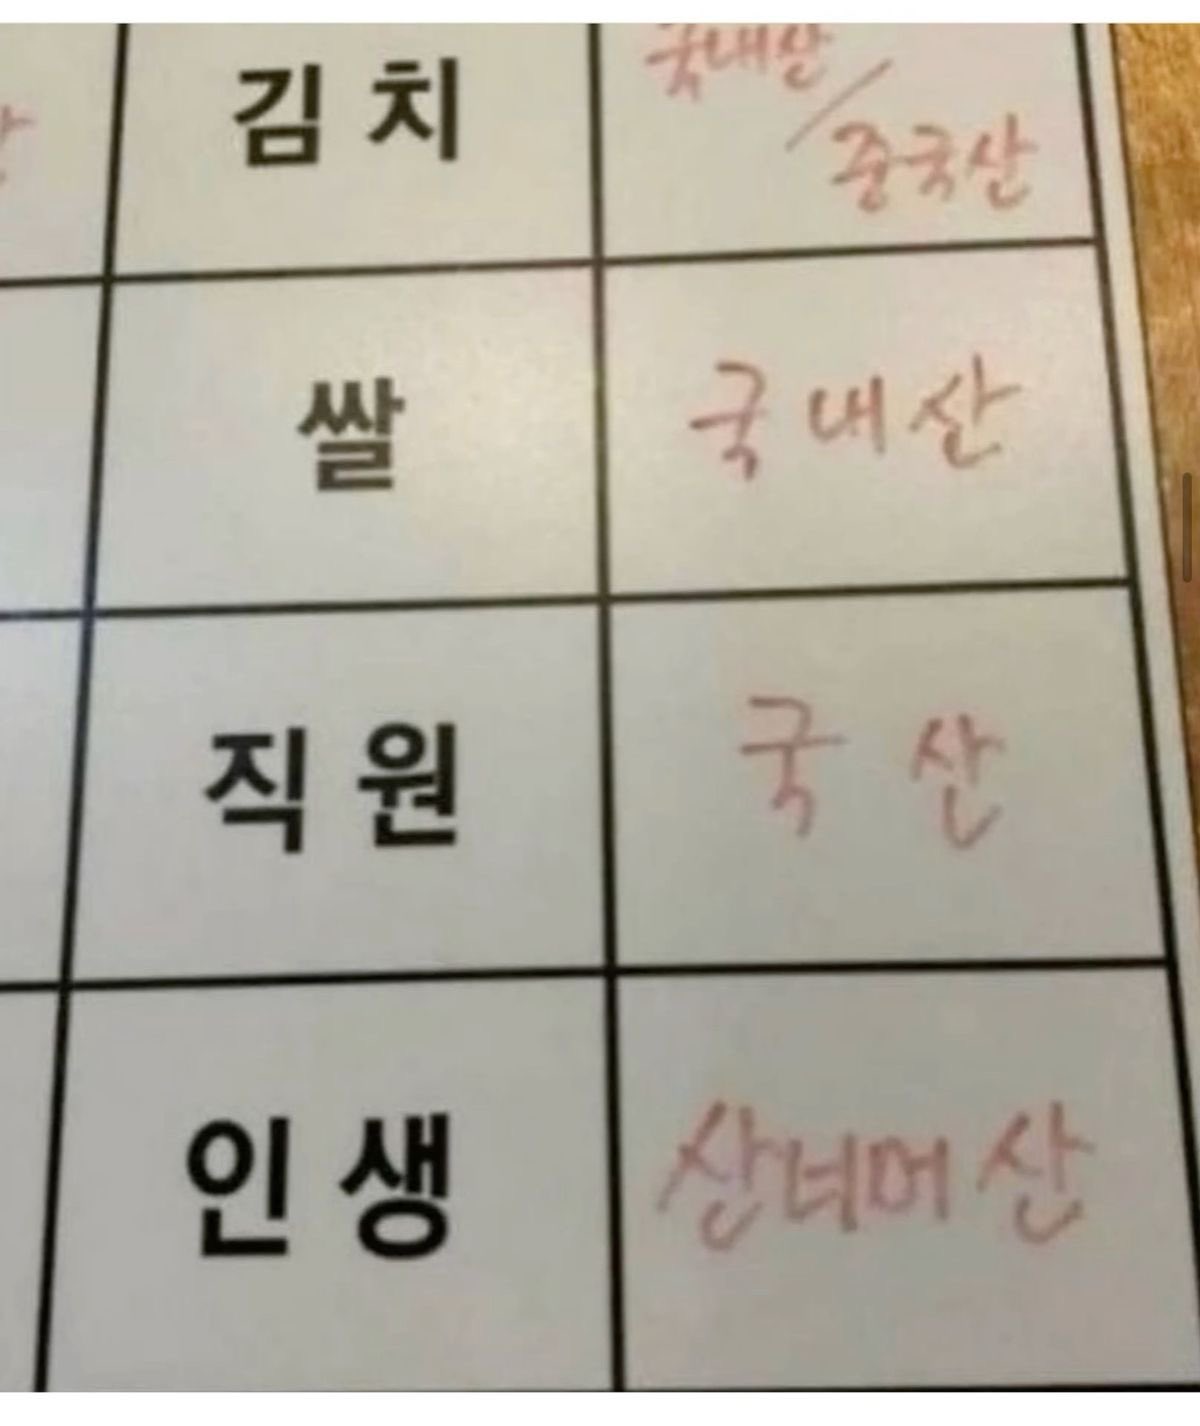 김치
국내산/
중국산
쌀 국내산
직원 국산
인생 산너머산